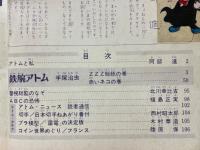 目次
アトムと私 阿部進 2
鉄腕アトム 手塚治虫
ZZZ総統の巻 3
赤いネコの巻 58
警視総監のなぞ 北川幸比古 95
ABCの恐怖 福島正実 96
アトム・ニュース 読者通信
切手／日本切手ねあがり番付 西村昭太郎 104
プラ模型／「雷電」の決定版 木村 106
コイン世界めぐり／フランス 108